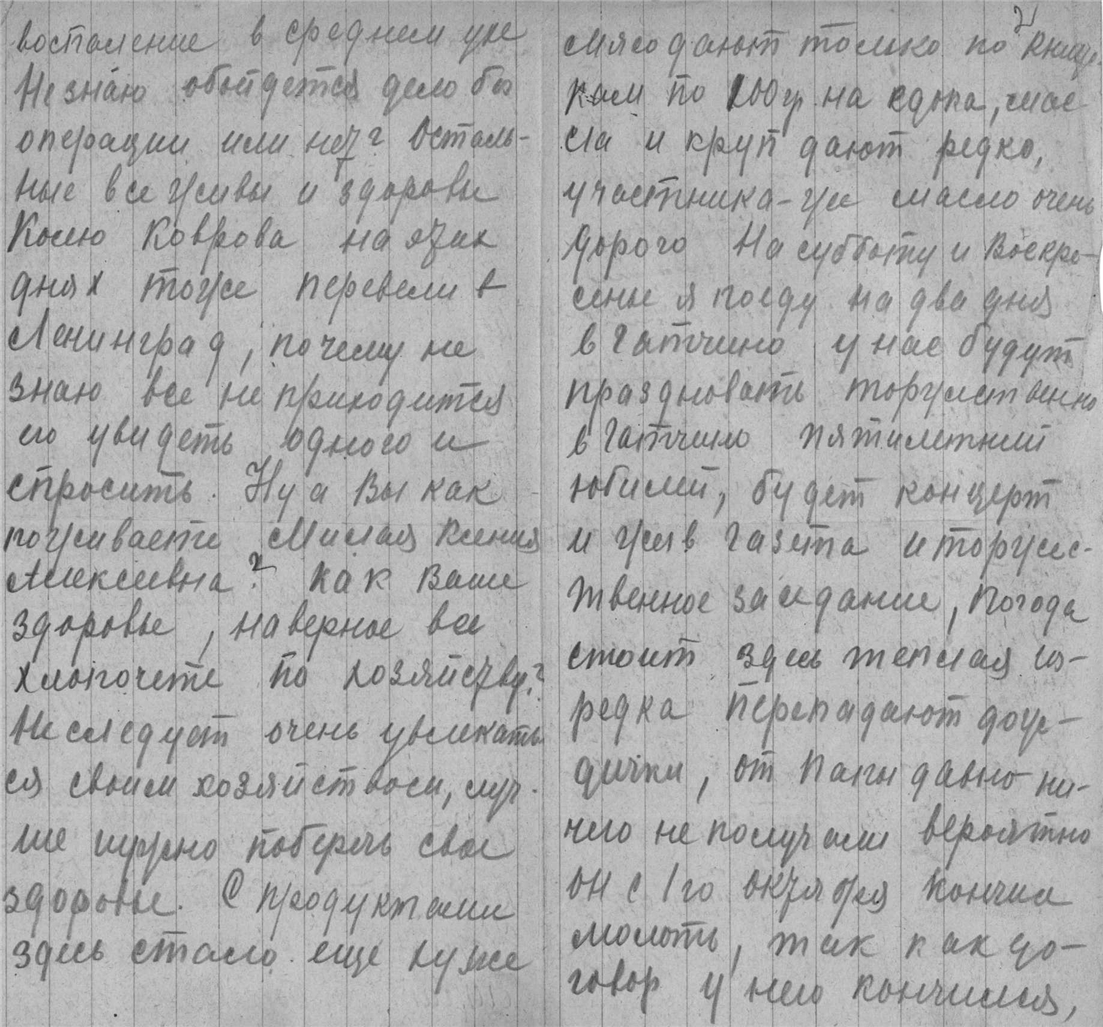 воспаление в среднем ухе
Не знаю обойдется дело без
операции или нет? Осталь-
ные все живы и здоровы
Колю Коврова на этих
днях тоже перевели в
Ленинград, почему не
знаю все не приходится
его увидеть одного и
спросить. Ну а Вы как
поживаете Милая Ксения
Алексеевна? Как Ваше
здоровье, наверное все
хлопочете по хозяйству?
Не следует очень увлекать
ся своим хозяйством, луч-
ше нужно поберечь свое
здоровье. С продуктами
здесь стало еще хуже
2
мясо дают только по книж
кам по 100 гр на едока, мас
ла и круп дают редко,
у частника-же масло очень
дорого На субботу и Воскре-
сенье я поеду на два дня
в Гатчино у нас будут
праздновать торжественно
в Гатчино пятилетний
юбилей, будет концерт
и жив газета и торжес-
твенное заседание, Погода
стоит здесь теплая из-
редка перепадают дож-
дички, от папы давно ни-
чего не получали вероятно
он с 1го октября кончил
молоть, так как до-
говор у него кончился,